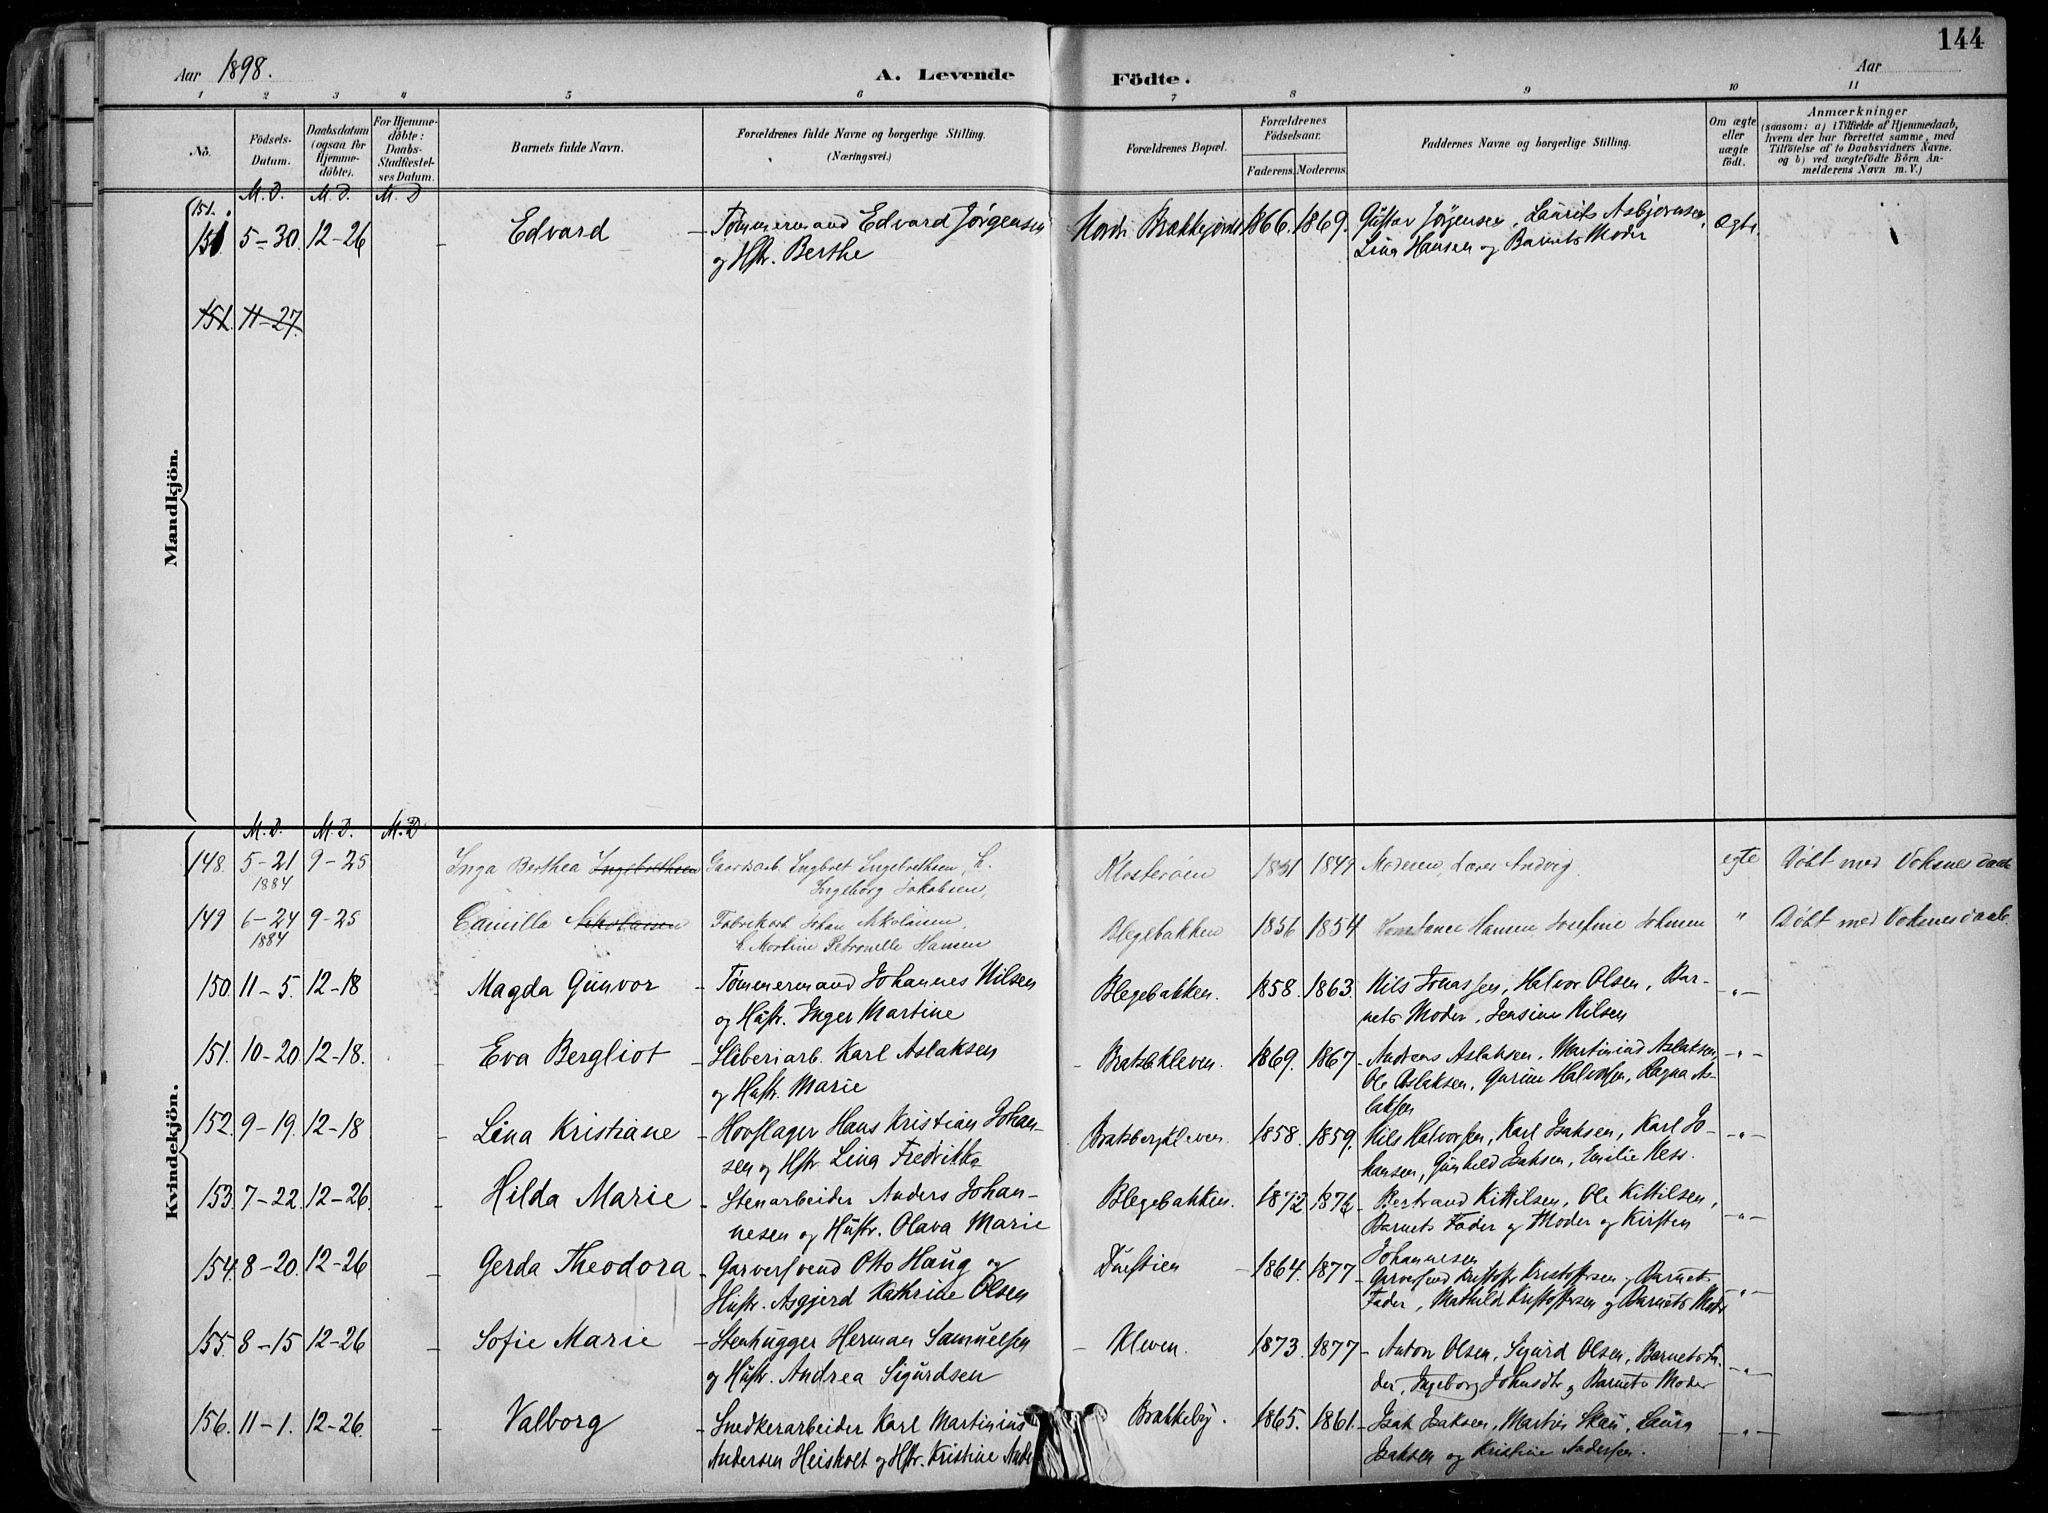 144
Aar 1898. A. Levende Födte. Aar
1 2 3 4 5 6 7 8 9 10 11
No.
Födsels-Datum.
Daabsdatum (ogsaa for Hjemme-döbte).
For Hjemme-döbte: Daabs-Stadfæstel-ses Datum.
Barnets fulde Navn.
Forældrenes fulde Navne og borgerlige Stilling.
(Næringsvei.)
Forældrenes Bopæl.
Forældrenes Födselsaar.
Faderens. Moderens.
Faddernes Navne og borgerlige Stilling.
Om ægte eller uægte födt.
Anmærkninger
(saasom: a) i Tilfælde af Hjemmedaab, hvem der har forrettet samme, med Tilföielse af to Daabsvidners Navne, og b) ved uægtefödte Börn An-melderens Navn m. V.)
M. D. M. D. M. D
Mandkjön.
151.
151 5-30. 12-26 - Edvard - Tømmermand Edvard Jörgensen Nordr. Brækkejordet 1866. 1869. Gustav Jørgensen, Laurits Asbjørnsen, Ægte
og Hstr. Berthe Lina Hansen og Barnets Moder
151. 11-27.
M. D. M. D. M. D
Kvindekjön.
148. 5-21 9-25 Inga Berthea Ingebrethsen Gaardsarb. Ingbret Ingebrethsen, h. Klosterøen 1851 1849 Moderen, Lærer Andvig egte Döbt med Voksnes daab
1884 Ingeborg Jakobsen,
149 6-24 9-25 Camilla Nikolaisen Fabrikarb Johan Nikolaisen, Blegebakken 1856 1854 Constance Hansen Josefine Johnsen " Döbt med Voksnes daab.
1884 h. Martine Petronelle Hansen
150. 11-5. 12-18 - Magda Gunvor - Tømmermand Johannes Nilsen Blegebakken. 1858. 1863. Nils Jonassen, Halvor Olsen, Bar- -"-
og Hustr. Inger Martine nets Moder, Jensine Nilsen
151. 10-20. 12-18. - Eva Bergliot - Sliberiarb. Karl Aslaksen - Bratsbkleven. 1869. 1867 - Andreas Aslaksen, Martinius Aslaksen, -"-
og Hustr. Marie Ole Aslaksen, Gurine Halvorsen, Ragna As-
laksen
152. 9-19. 12-18 - Lina Kristiane - Hovslager Hans Kristian Johan- Bratsbergkleven. 1858. 1859. Nils Halvorsen, Karl Isaksen, Karl Jo- -"-
sen og Hstr. Lina Fredrikke hansen, Gunhild Isaksen, Emilie Ness.
153. 7-22. 12-26. - Hilda Marie - Stenarbeider Anders Johan- Blegebakken. 1872 1876 - Bertrand Kittilsen, Ole Kittilsen, -"-
nesen og Hustr. Olava Marie Barnets Fader og Moder og Kirsten
Johannesen
154. 8-20. 12-26 - Gerda Theodora - Garversvend Otto Haug og Duestien - 1864. 1877 - Garversvend Kristoffer Kristoffersen og Barnets -"-
Hustr. Asgjerd Kathrine Olsen Fader, Mathilde Kristoffersen og Barnets Moder
155. 8-15 12-26 - Sofie Marie - Stenhugger Herman Samuelsen - Kleven. 1873. 1877 - Anton Olsen, Sigurd Olsen, Barnets Fa- -"-
og Hustr. Andrea Sigurdsen der, Ingeborg Johnsdtr og Barnets Moder
156. 11-1. 12-26. - Valborg - Snedkerarbeider Karl Martinius Brækkeby. 1865. 1861. - Isak Isaksen, Martin Skau, Laura -"-
Andersen Heisholt og Hstr. Kristine Ande Isaksen og Kristine Andersen.